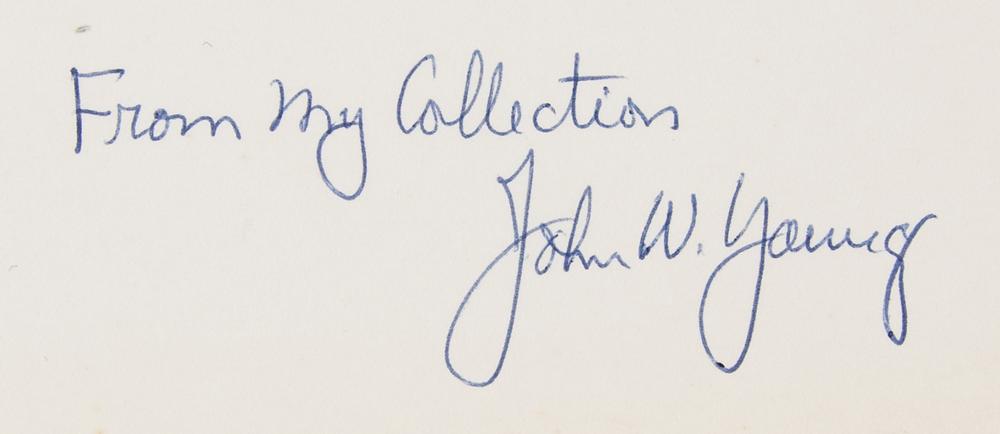 From My Collection
John W. Young